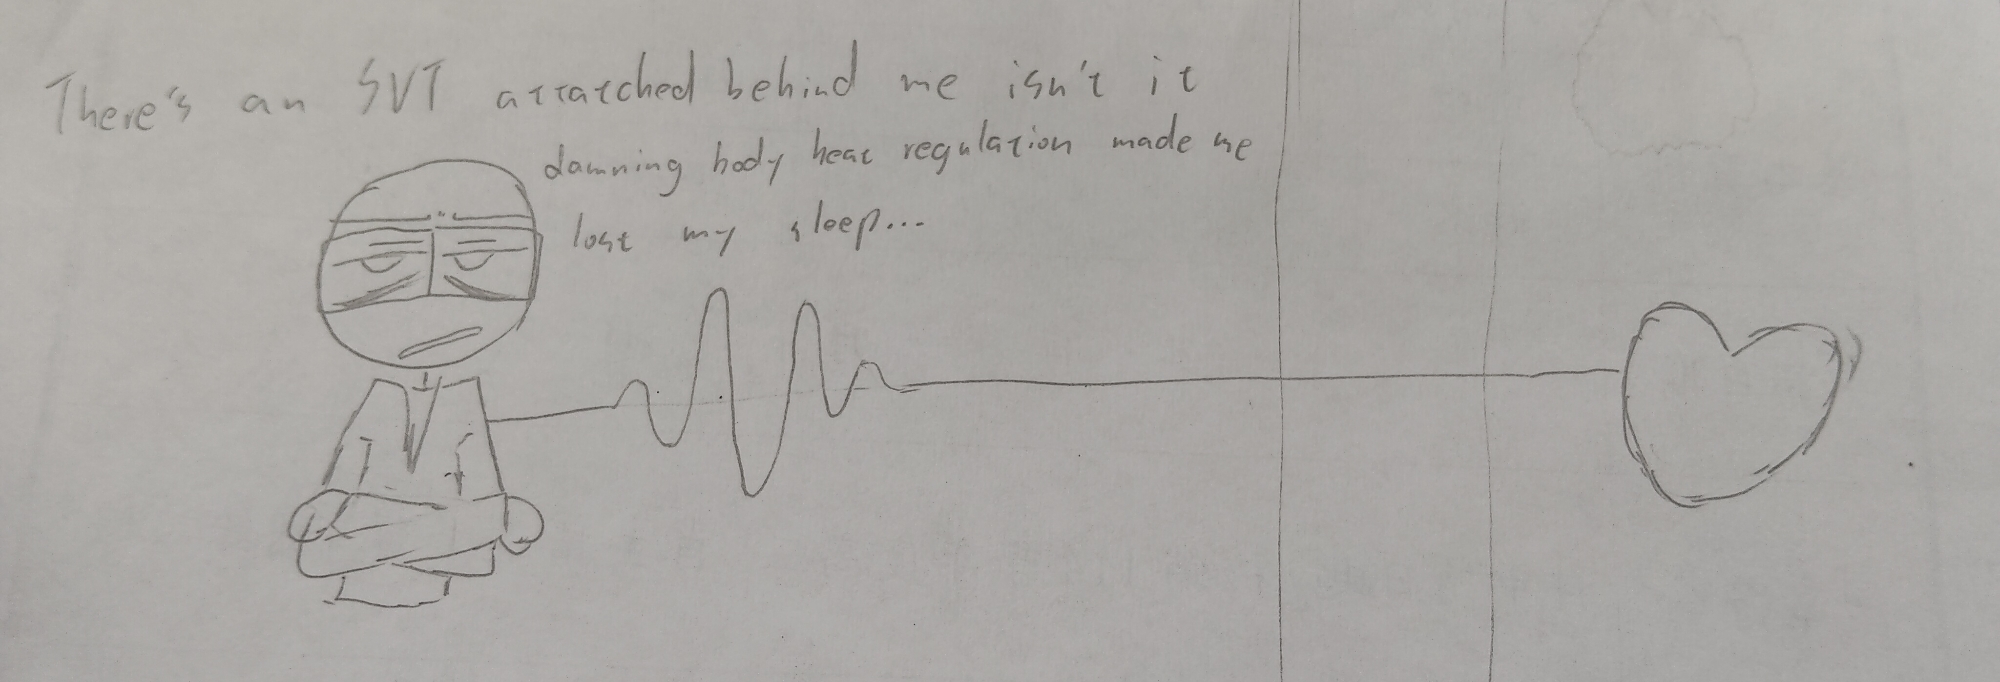 There's an SVT attatched behind me isn't it
damning body heat regulation made me
lost my sleep...